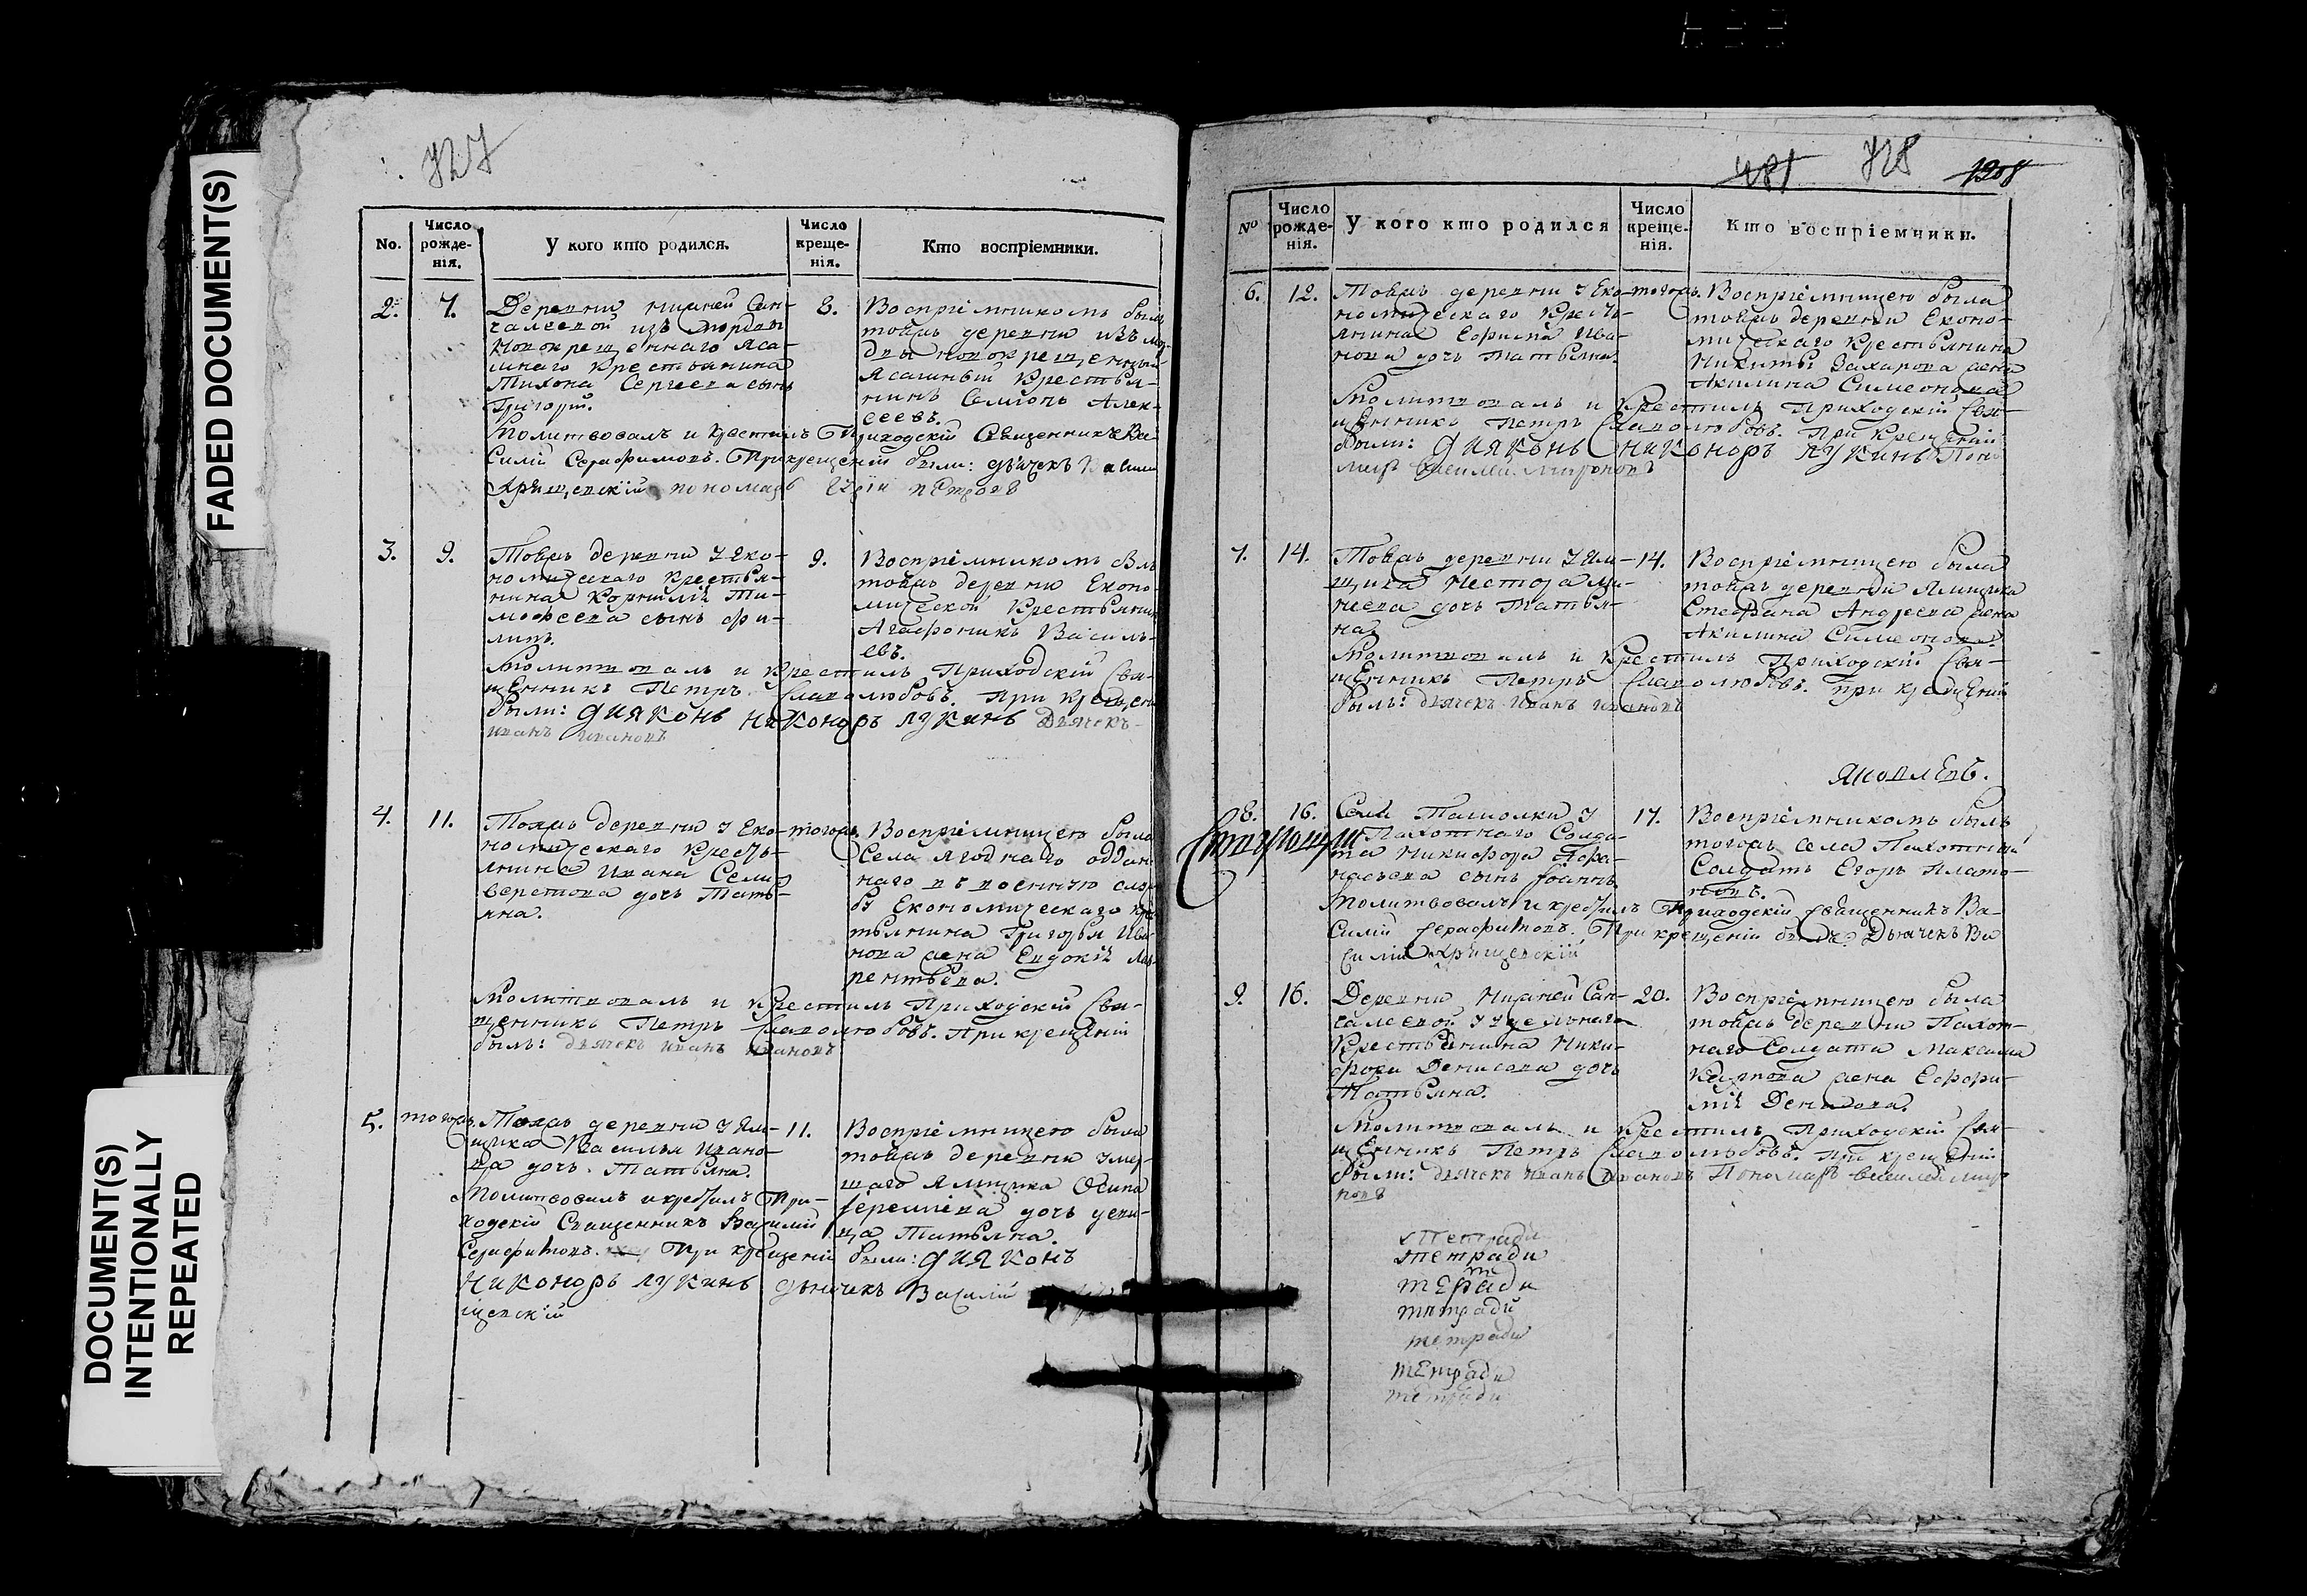 FADED DOCUMENT(S)
DOCUMENT(S)
INTENTIONALLY
REPEATED
727
No.
Число рожде-нія.
У кого кто родился.
Число креще-нія.
Кто воспріемники.
2.
7.
Деревни нижней Сан-
чалеевой изъ мордвы
новокрещеннаго Яса-
шнаго Крестьянина
Тихона Сергеева сынъ
Григорій.
8.
Воспріемникомъ былъ
тойжъ деревни изъ мор-
двы новокрещенный
Ясашный Крестья-
нинъ Семіонъ Алек-
сеевъ.
Молитвовалъ и крестилъ Приходскій Священникъ Ва-
силій Серафимовъ. При крещеніи были: дьячекъ
пономарь Петровъ
3.
9.
Тойжъ деревни у Эко-
номическаго Крестья-
нина Корнилія Ти-
мофеева сынъ Фи-
липъ.
9.
Воспріемникомъ былъ
тойжъ деревни Еконо-
мической Крестьянинъ
Агафоникъ Василь-
евъ.
Молитвовалъ и крестилъ Приходскій Свя-
щенникъ Петръ Славолюбовъ. При крещеніи
были: диаконъ Никоноръ Лукинъ Дьячекъ
Иванъ Ивановъ
4.
11.
Тояжъ деревни у Еко-
номическаго Кресть-
янина Ивана Сели-
верстова дочь Тать-
яна.
тогожъ.
Воспріемницею была
Села Ягоднаго оддан-
наго въ военную служ-
бу Економическаго кре-
стьянина Григорья Ива-
нова жена Евдокія Лав-
рентьева.
Молитвовалъ и крестилъ Приходскій Свя-
щенникъ Петръ Славолюбовъ. При крещеніи
былъ: дьячекъ Иванъ Ивановъ
5.
тогожъ.
Тояжъ деревни у Ям-
щика Василья Ивано-
ва дочь Татьяна.
11.
Воспріемницею была
тойжъ деревни умер-
шаго Ямщика Осипа
Еремеева дочь деви-
ца Татьяна.
Молитвовалъ и крестилъ При-
ходскій Священникъ Василій
Серафимовъ. При крещеніи были: диаконъ
Никоноръ Лукинъ дьячекъ Василій
щевскій
481 728 1308
No
Число рожде-нія.
У кого кто родился
Число креще-нія.
Кто воспріемники.
6.
12.
Тойжъ деревни у Еко-
номическаго Кресть-
янина Ефима Ива-
нова дочь Татьяна.
тогожъ.
Воспріемницею была
тойжъ деревни Еконо-
мическаго Крестьянина
Никиты Захарова жена
Акилина Симеонова
Молитвовалъ и крестилъ Приходскій Свя-
щенникъ Петръ Славолюбовъ. При крещеніи
были: диаконъ Никоноръ Лукинъ Поно
марь Василей Мироновъ
7.
14.
Тойжъ деревни у Ям-
щика Нестора Ми-
неева дочь Татья-
на.
14.
Воспріемницею была
тойжъ деревни Ямщика
Стефана Андреева жена
Акилина Симеонова.
Молитвовалъ и крестилъ Приходскій Свя-
щенникъ Петръ Славолюбовъ. При крещеніи
былъ: дьячекъ Иванъ Ивановъ
Яковлевъ.
8.
16.
Села Ташолки у
Пахотнаго Солда-
та Никифора Афа-
насьева сынъ Іоаннъ.
17.
Воспріемникомъ былъ
тогожъ села Пахотный
Солдатъ Егоръ Плато-
новъ.
Молитвовалъ и крестилъ Приходскій Священникъ Ва-
силій Серафимовъ. При крещеніи былъ: Дьячекъ Ва
силій
9.
16.
Деревни Нижней Сан-
чалеевой у удельнаго
Крестьянина Ники-
фора Денисова дочь
Татьяна.
20.
Воспріемницею была
тойжъ деревни Пахот-
наго Солдата Максима
Карпова жена Еффи-
мія Демидова.
Молитвовалъ и крестилъ Приходскій Свя-
щенникъ Петръ Славолюбовъ. При крещеніи
были: дьячекъ Иванъ Ивановъ Пономарь Василей Миро
новъ
тетради
тетради
тетради
тетради
тетради
тетради
тетради